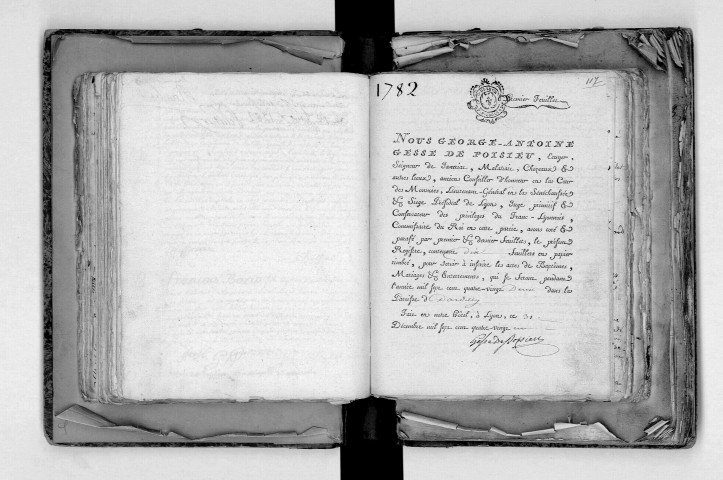 1782
117
Premier Feuillet
NOUS GEORGE-ANTOINE
GESSE DE POISIEU, Ecuyer,
Seigneur de Malataix, Chezeaux &
autres lieux, ancien Conseiller d'honneur en la Cour
des Monnoies, Lieutenant-Général en la Sénéchaussée
& Siege Présidial de Lyon, Juge primitif &
Conservateur des privileges du Franc-Lyonnois,
Commissaire du Roi en cette partie, avons coté &
paraffé par premier & dernier feuillet, le présent
Registre, contenant feuillets en papier
timbré, pour servir à inscrire les actes de Baptêmes,
Mariages & Enterremens, qui se feront pendant
l'année mil sept cent quatre-vingt Deux dans la
Paroisse d Dardilly
Fait en notre Hôtel, à Lyon, ce 31
Décembre mil sept cent quatre-vingt un
Gesse de Poisieu